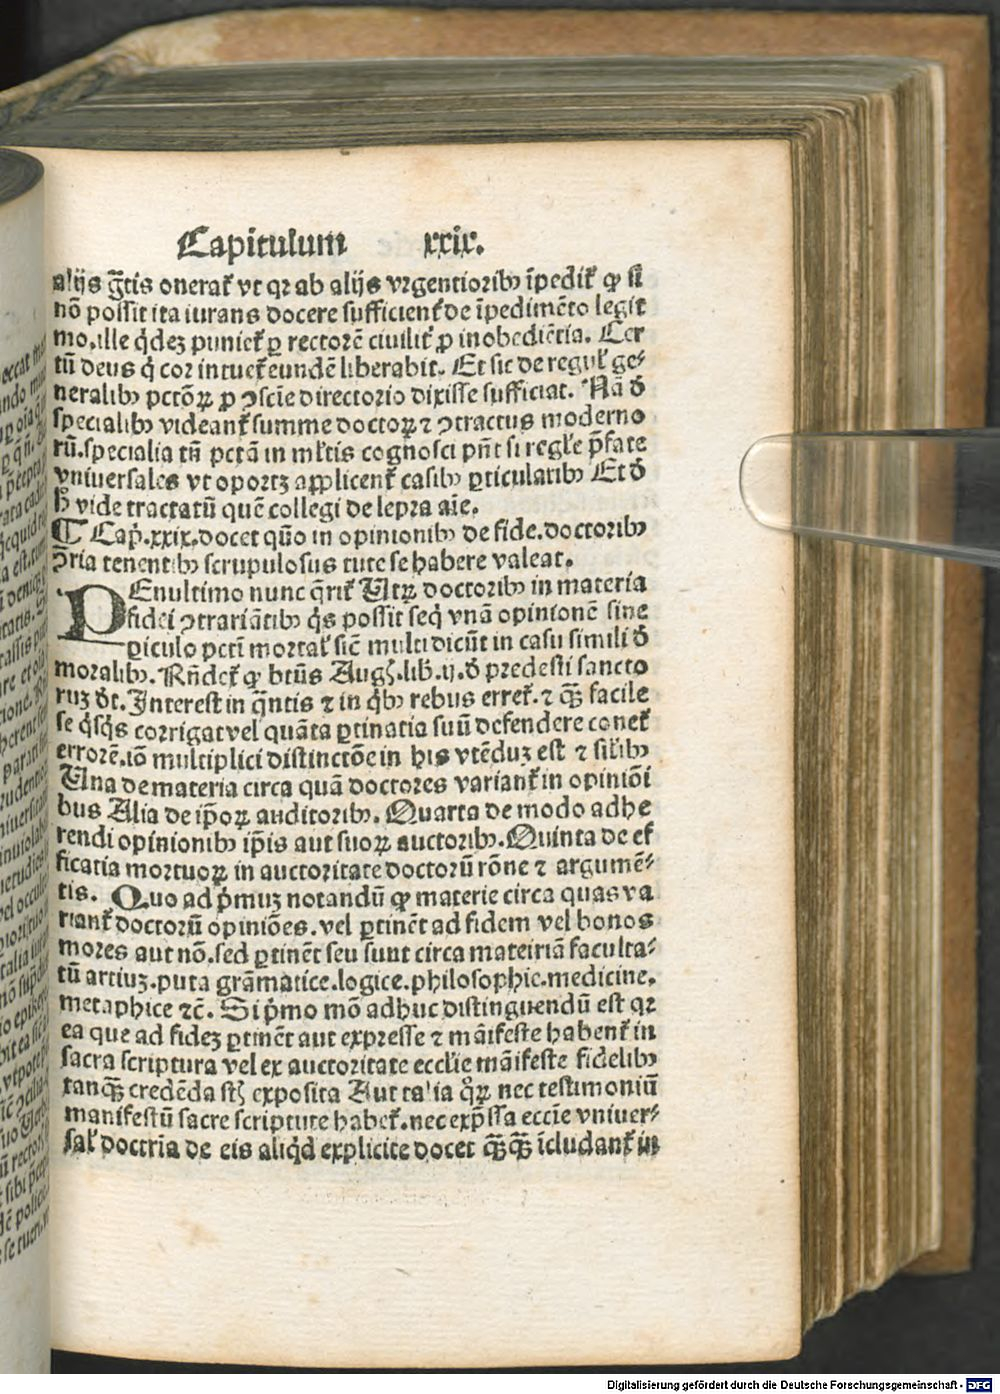 Capitulum xxix.
alijs g̃tis onerat᷑ vt qꝛ ab alijs vꝛgentioribꝫ ĩpedit᷑ ꝙ si
nõ possit ita iurans docere sufficient᷑ de ĩpedimẽto legit
mo.ille q̇dez puniet᷑ ꝑ rectorẽ ciuilit᷑ ꝓ inobediẽtia. Cer
tũ deus q̇ cor intuet᷑ eundẽ liberabit. Et sic de regul᷑ ge⸗
neralibꝫ pctõꝝ ꝓ ꝯscĩe directorio dixisse sufficiat. Nã ð
specialibꝫ videant᷑ summe doctoꝝ ⁊ ꝯtractus moderno
rũ.specialia tñ pctã in ml̃tis cognosci pñt si regl̃e p̃fate
vniuersales vt oportꝫ applicent᷑ casibꝫ ꝑticularibꝫ Et ð
h̃ vide tractatũ quẽ collegi de lepꝛa aĩe.
¶ Cap̃.xxix.docet quõ in opinionibꝫ de fide.doctoribꝫ
ꝯ̃ria tenentibꝫ scrupulosus tute se habere valeat.
PEnultimo nunc q̃rit᷑ Utꝝ doctoribꝫ in materia
fidei ꝯtrariãtibꝫ q̇s possit seq̇ vnã opinionẽ sine
ꝑiculo pcti mortal᷑ sic̃ multi dicũt in casu simili ð
moralibꝫ. Rñdet᷑ ꝙ btũs Augꝰ.lib̃.ij.ð predesti sancto
ruz ðt. Interest in q̃ntis ⁊ in q̇bꝫ rebus erret᷑.⁊ q̃ꝫ facile
se q̇sq̇s coꝛrigat vel quãta ꝑtinatia suũ defendere conet᷑
erroꝛẽ.iõ multiplici distinctõe in his vtẽduꝫ est ⁊ sil̃ibꝫ
Una de materia circa quã doctores variant᷑ in opiniõi
bus Alia de ip̃oꝝ auditoribꝫ. Quarta de modo adhe
rendi opinionibꝫ ip̃is aut suoꝝ auctoribꝫ.Quinta de ef
ficatia mortuoꝝ in auctoritate doctorũ rõne ⁊ argumẽ⸗
tis. Quo ad p̃muꝫ notandũ ꝙ materie circa quas va
riant᷑ doctorũ opiniões.vel ꝑtinẽt ad fidem vel bonos
mores aut nõ.sed ꝑtinẽt seu sunt circa mateiriã faculta⸗
tũ artiuꝫ.puta grãmatice.logice.philosophie.medicine.
metaphice ⁊c̃. Si p̃mo mõ adhuc distinguendũ est qꝛ
ea que ad fideꝫ ꝑtinẽt aut expresse ⁊ mãifeste habent᷑ in
sacra scriptura vel ex auctoritate eccl̃ie mãifeste fidelibꝫ
tanq̃ꝫ credẽda st̃ exposita Aut talia q̃ꝝ nec testimoniũ
manifestũ sacre scripture habet᷑.nec exp̃ssa eccĩe vniuer⸗
sal᷑ doctrĩa de eis aliq̇d explicite docet q̃ꝫq̃ꝫ ĩcludant᷑ in
Digitalisierung gefördert durch die Deutsche Forschungsgemeinschaft - DFG